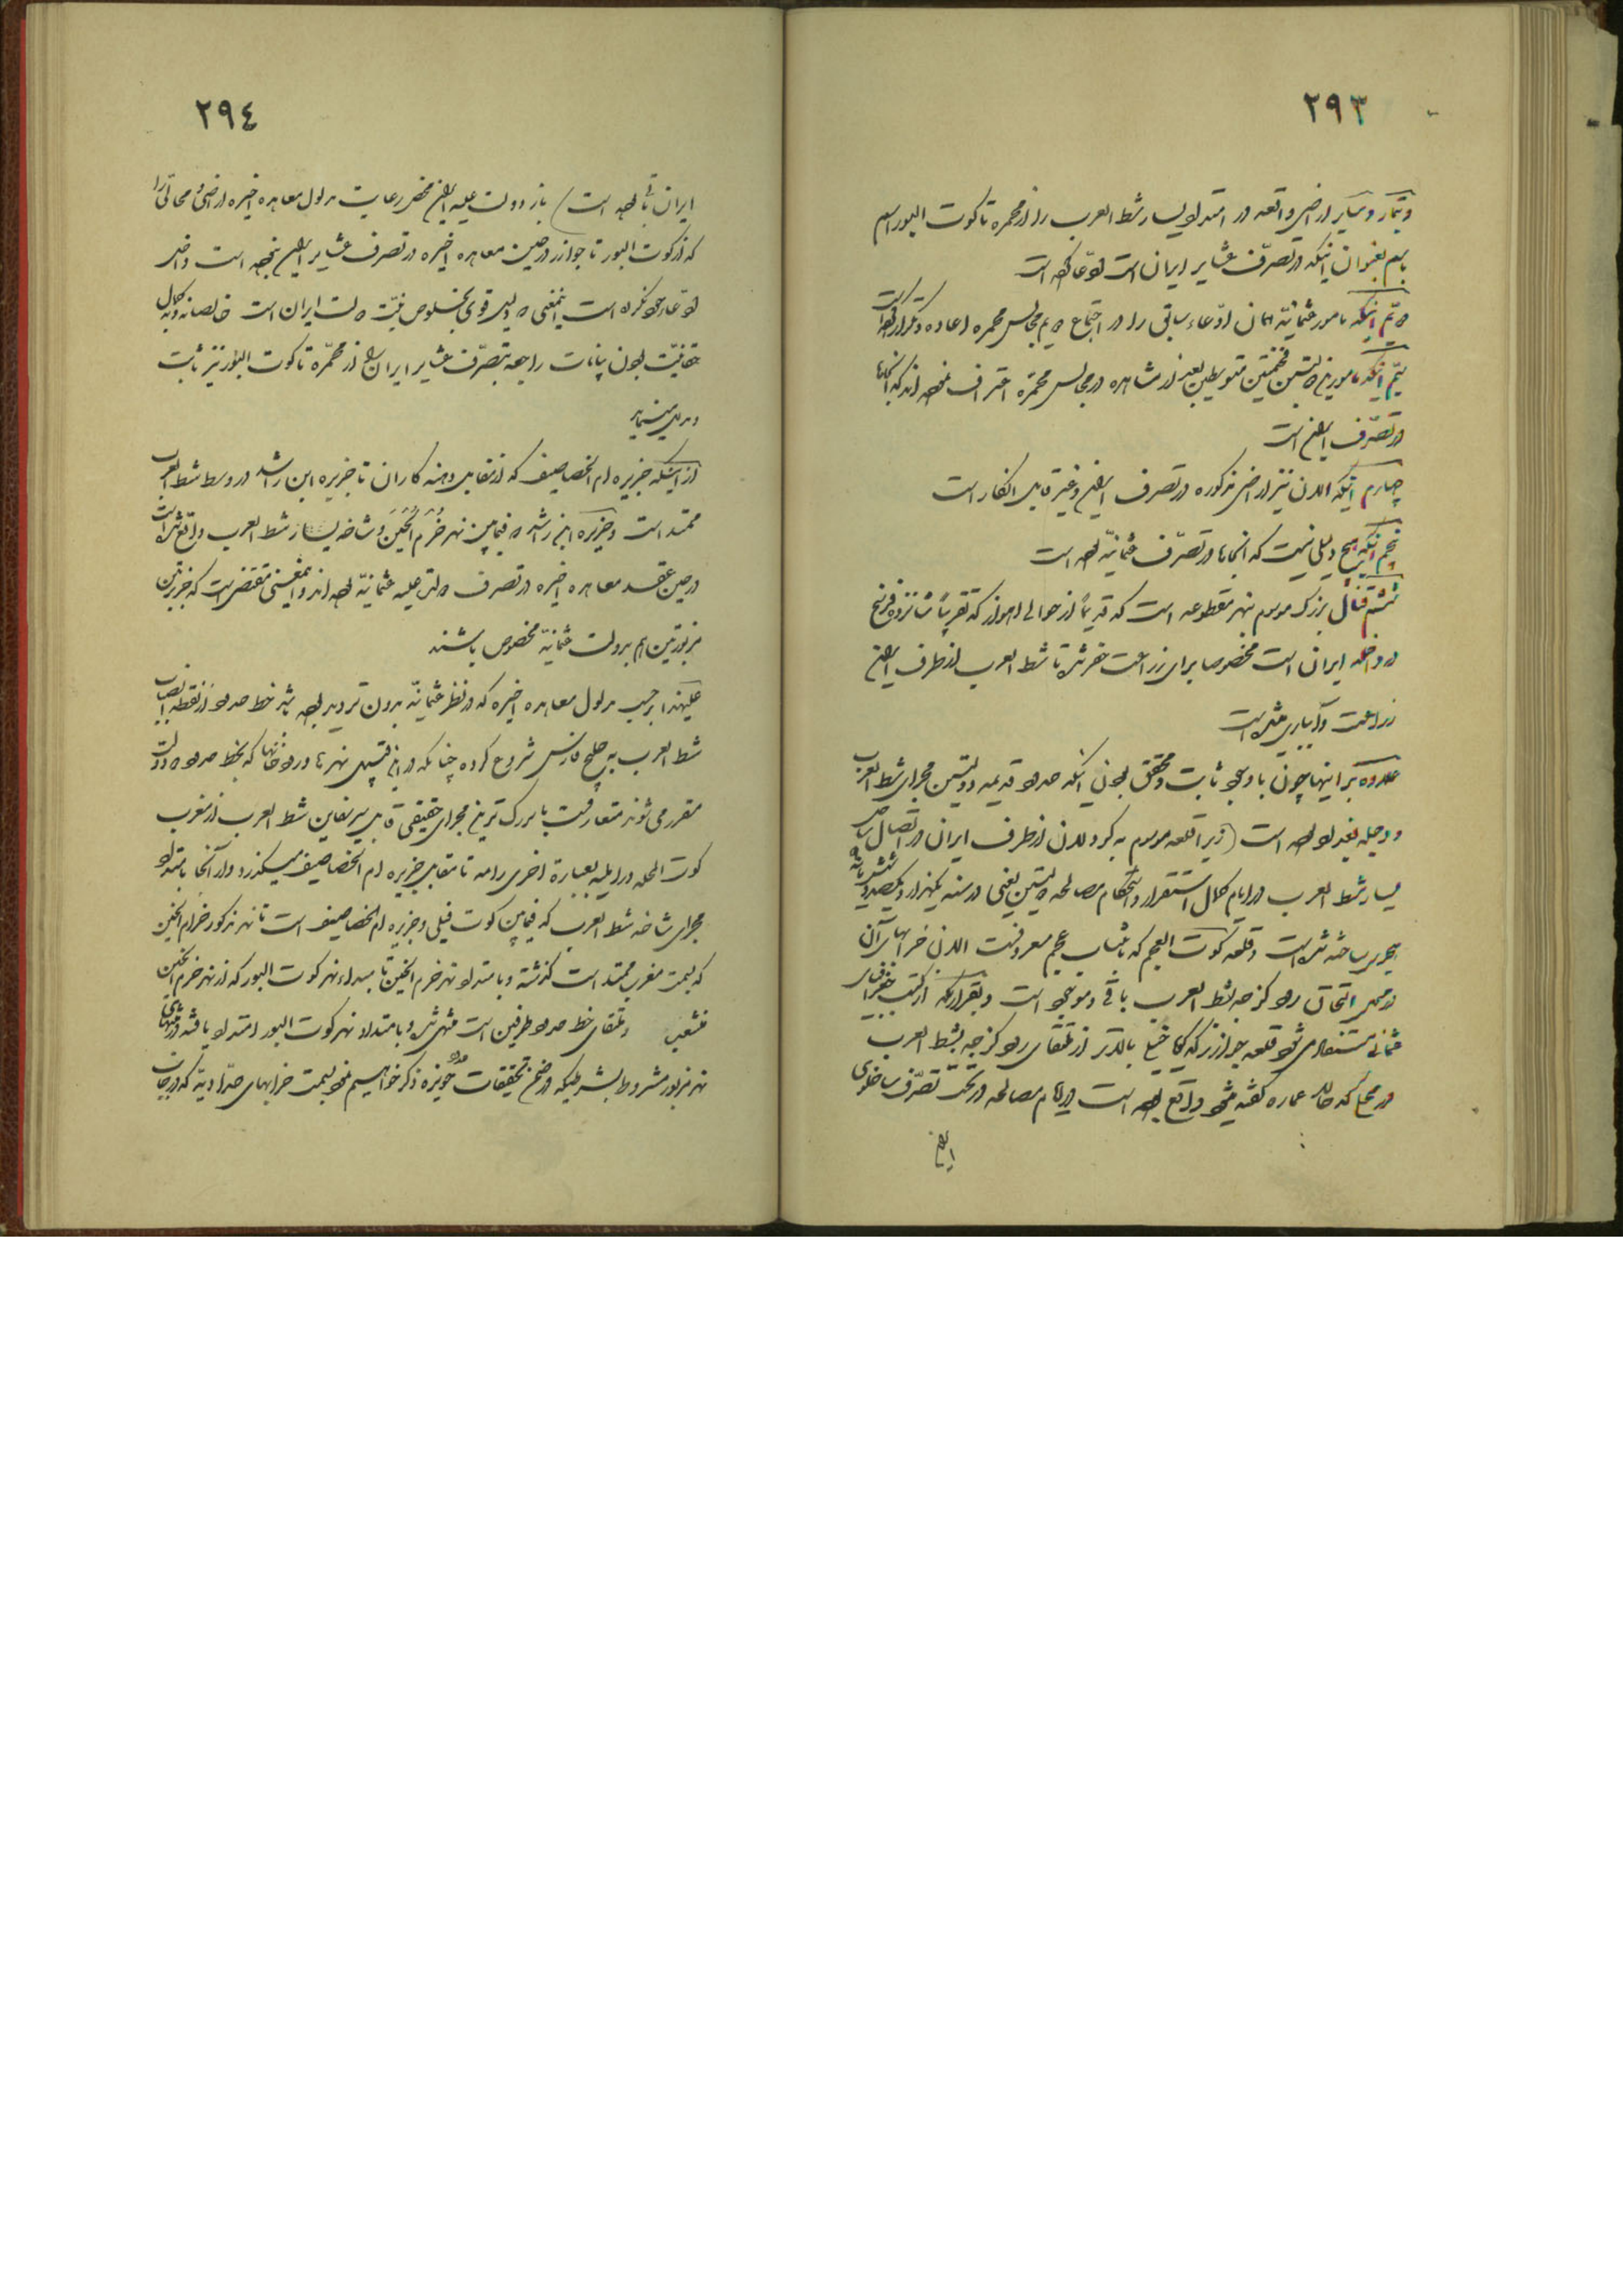 ٢٩٣
و تمار و سایر اراضی واقعه در امتداد یسار شط العرب را از محمره تا کوت البور اسم
باسم بعنوان اینکه در تصرّف عشایر ایران است ادّعا کرده است
دویّم اینکه مامور عثمانیّه همان ادّعاء سابق را در اجتماع دویم مجالس محمره اعاده و تکرار کرده است
سیّم اینکه مامورین دولتین متوسطین بعد از مشاهده در مجالس محمّره اعتراف نموده اند که آنجاها
در تصرّف ایران است
چهارم اینکه الان نیز اراضی مذکوره در تصرف ایران و غیر قابل انکار است
پنجم اینکه هیچ دلیلی نیست که آنجاها در تصرّف عثمانیّه بوده است
ششم قنال بزرگ موسوم بنهر مقطوعه است که قدیماً از حوالی اهواز که تقریباً شانزده فرسخ
در داخله ایران است مخصوصا برای زراعت حفر شده تا شط العرب از طرف ایران
زراعت و آبیاری شده است
علاوه بر اینها چون با وجود ثابت و محقق بودن اینکه حدود قدیمه دولتین مجرای شط العرب
و دجله بغداد بوده است (زیرا قلعه موسوم به کردلان از طرف ایران در اتصال ساحل
یسار شط العرب در ایام کمال استقرار و استحکام مصالحه دولتین یعنی در سنه یکهزار و یکصد و
هجری ساخته شده است و قلعه کوت العجم که بانتساب عجم معروفست الان خرابهای آن
در ممر التحاق رود کرخه بشط العرب باقی و موجود است و بقراریکه از کتب جغرافیای
عثمانی مستفاد می شود قلعه جوازر که خیلی بالاتر از ملتقای رود کرخه بشط العرب
در محلی که حالا عماره گفته میشود واقع بوده است در ایام مصالحه در تحت تصرّف ساخلوی
ایران
٢٩٤
ایران باقی بوده است) باز دولت علیه ایران محض رعایت مدلول معاهده اخیره اراضی و محالّی را
که از کوت البور تا جوازر در حین معاهده اخیره در تصرف عشایر ایران نبوده است داخل
ادّعای خود نکرده است اینمعنی که دلیل قوی بخلوص نیّت دولت ایران است خالصانه و به کمال
حقانیّت بودن بیانات راجعه بتصرّف عشایر ایران از محمّره تا کوت البور نیز ثابت
و مدلل مینماید
از اینکه جزیره ام الخصاصیف که از مقابل دهنه کاران تا جزیره ابن راشد در وسط شط العرب
ممتد است و جزیره ابن راشد که فیمابین نهر خُرّم الُحَیَن و شاخه یسار شط العرب واقع شده است
در حین عقد معاهده اخیره در تصرف دولت علیه عثمانیّه بوده اند و اینمعنی مقتضی است که جزیرتین
مزبورتین هم بدولت عثمانیّه مخصوص باشند
علیهذا بر حسب مدلول معاهده اخیره که در نظر عثمانیّه بدون تردید بوده باشد خط حدود از نقطه انصباب
شط العرب به خلیج فارس شروع کرده چنانکه در این قبیل نهرها و رودخانها که بخط حدود دو دولت
مقرر می شوند متعارفست با بزرگ ترین مجرای حقیقی قابل سیر سفاین شط العرب از مغرب
کوت المحله در آمده بعبارة اخری رامه تا مقابل جزیره ام الخصاصیف میگذرد و از آنجا بامتداد
مجرای شاخه شط العرب که فیمابین کوت فیلی و جزیره ام الخصاصیف است تا نهر مذکور خرّم الحین
که بسمت مغرب ممتد است گذشته و بامتداد نهر خرم الحین تا مبداء نهر کوت البور که از نهر خرم الحین
منشعب و ملتقای خط حدود طرفین است منتهی شده و بامتداد نهر کوت البور امتداد یافته و در منتهای
نهر مزبور مشروط بشرطیکه در ضمن تحقیقات حدود حویزه ذکر خواهیم نمود بسمت خرابهای حدّادیّه که در جانب